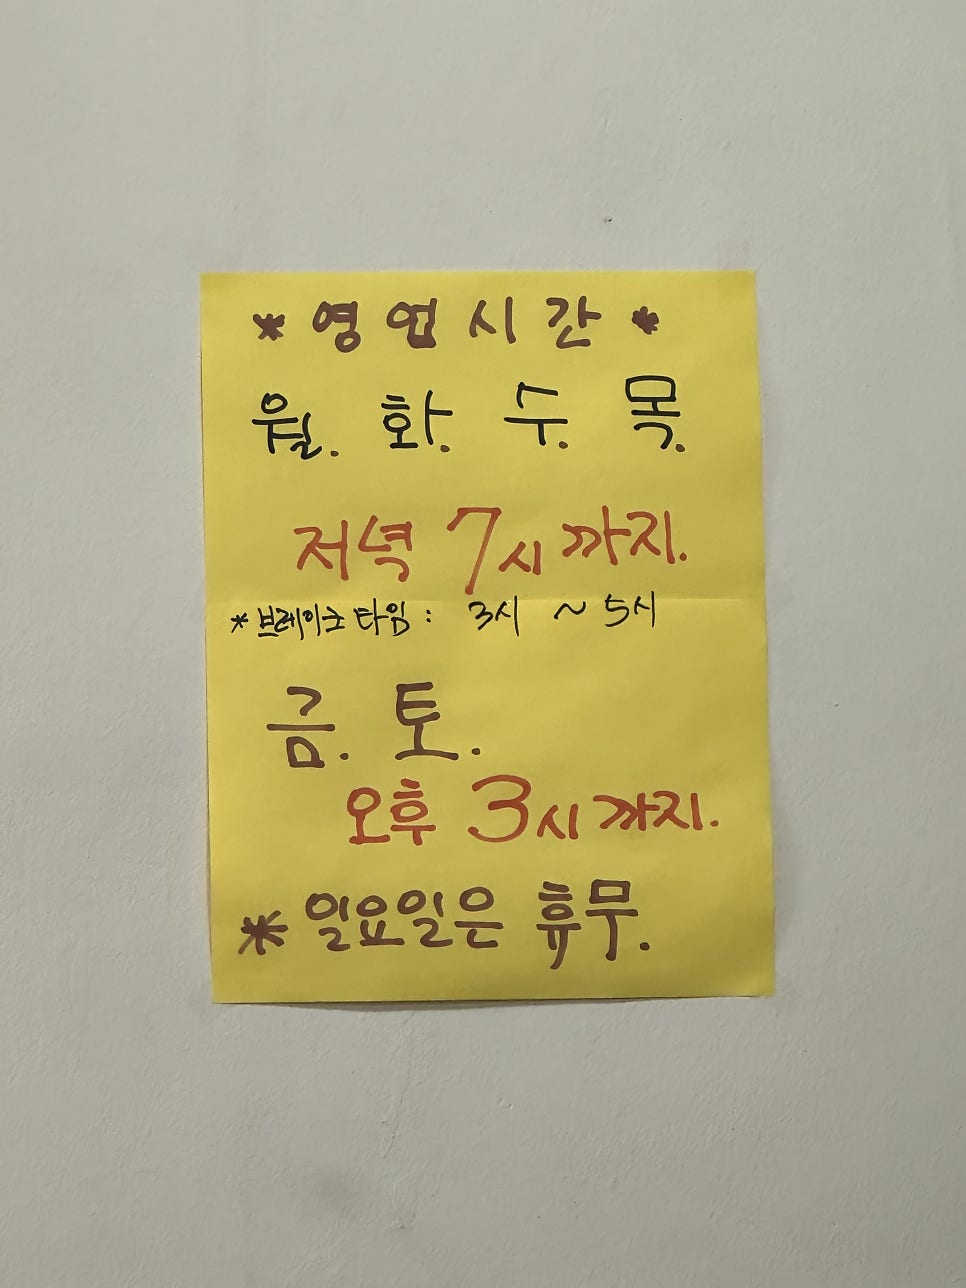 * 영업시간 *
월. 화. 수. 목.
저녁 7시까지.
* 브레이크 타임 : 3시 ~ 5시
금. 토.
오후 3시까지.
* 일요일은 휴무.